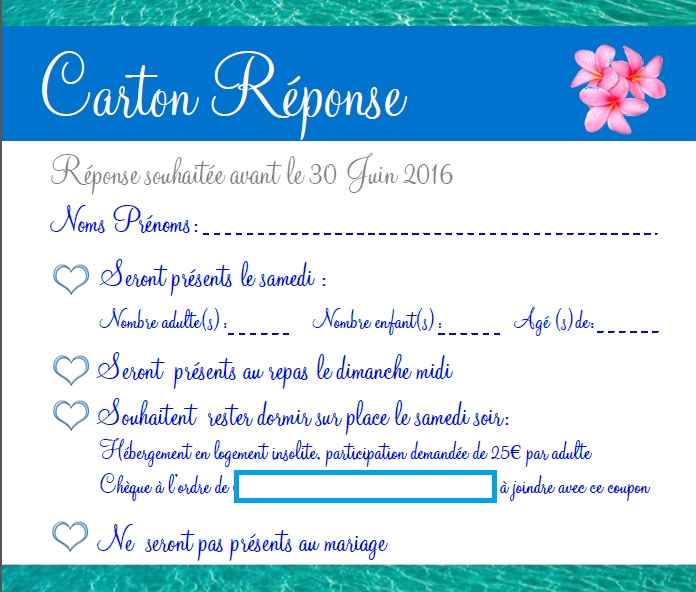 Carton Réponse
Réponse souhaitée avant le 30 Juin 2016
Noms Prénoms :
Seront présents le samedi :
Nombre adulte(s) : Nombre enfant(s) : Agé (s) de:
Seront présents au repas le dimanche midi
Souhaitent rester dormir sur place le samedi soir:
Hébergement en logement insolite, participation demandée de 25€ par adulte
Chèque à l'ordre de à joindre avec ce coupon
Ne seront pas présents au mariage